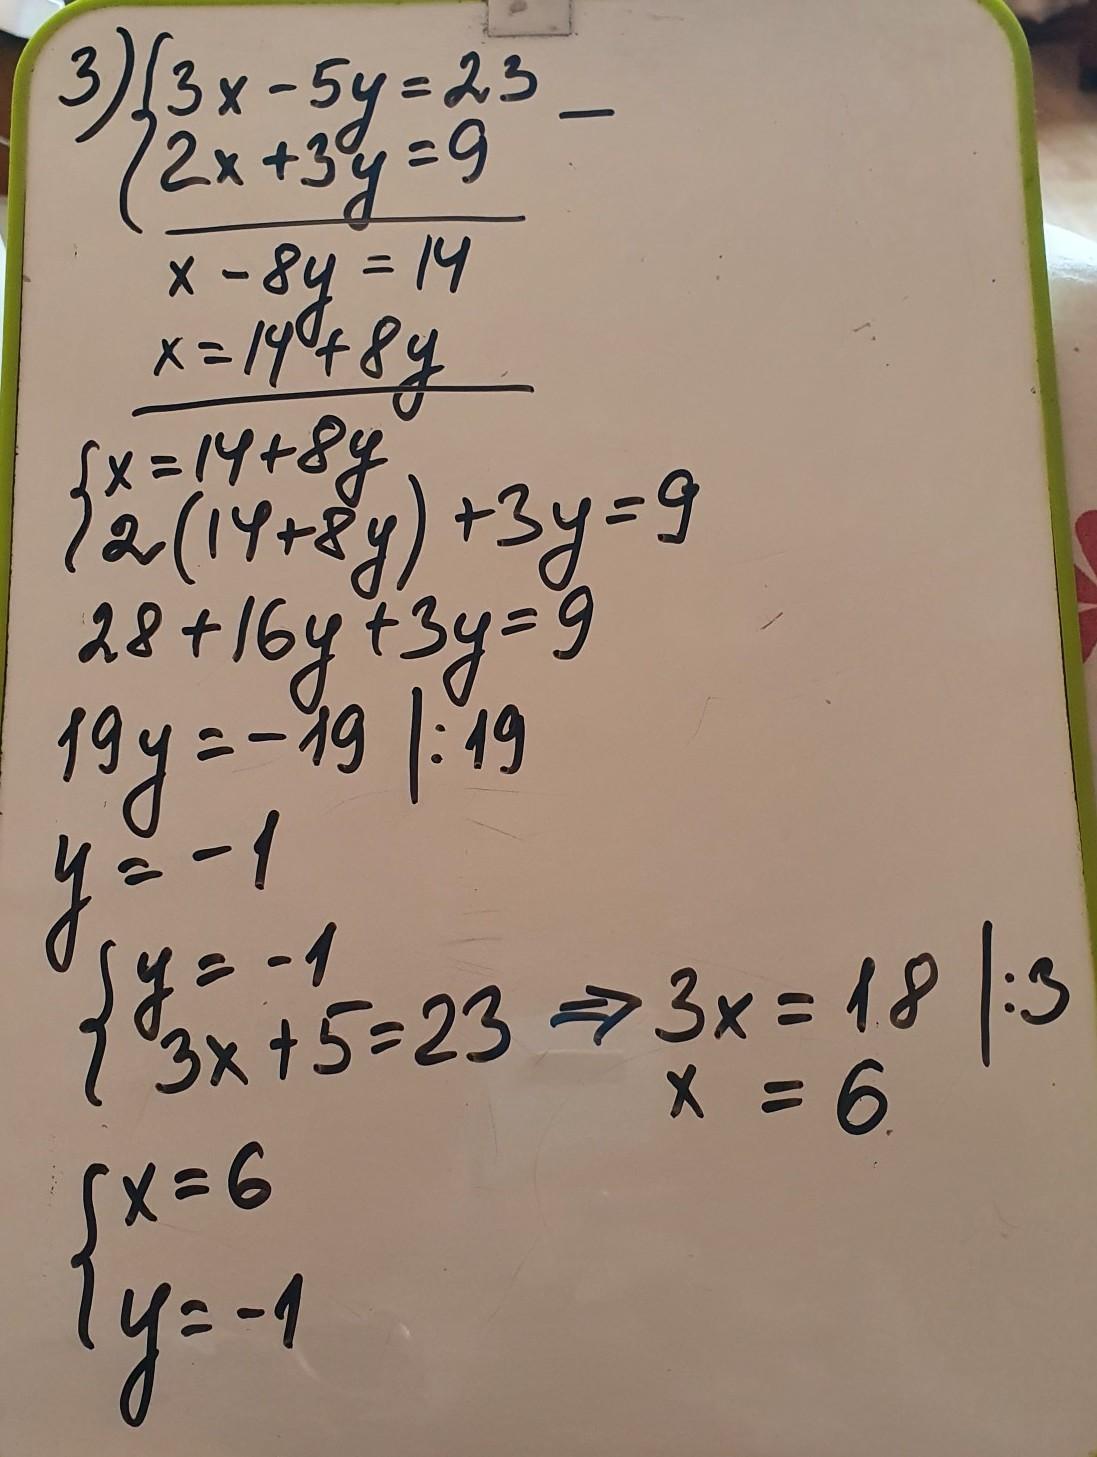 3) { 3x - 5y = 23 _
{ 2x + 3y = 9
x - 8y = 14
x = 14 + 8y
{ x = 14 + 8y
{ 2(14 + 8y) + 3y = 9
28 + 16y + 3y = 9
19y = -19 |:19
y = -1
{ y = -1
{ 3x + 5 = 23 ⇒ 3x = 18 |:3
x = 6
{ x = 6
{ y = -1